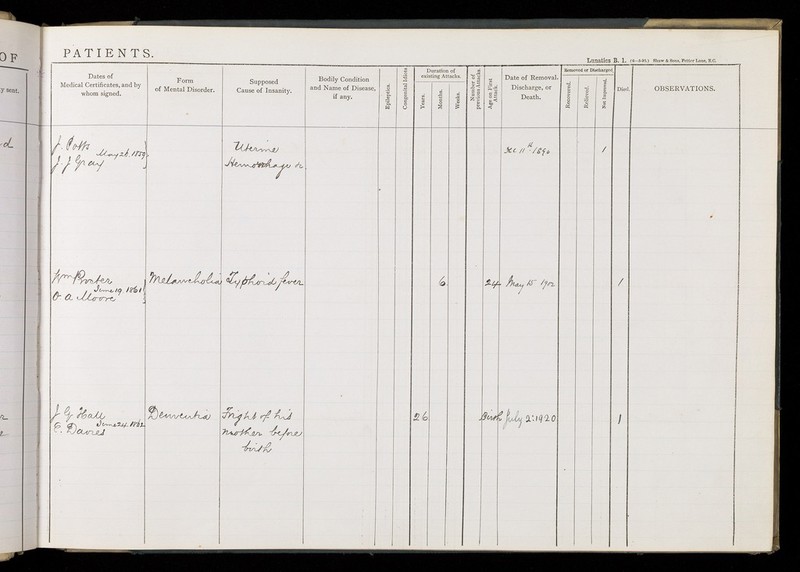 OF
PATIENTS.
Lunatics B. 1. Shaw & Sons, Fetter Lane, E.C.
y sent.
Dates of
Medical Certificates, and by
whom signed.
Form
of Mental Disorder.
Supposed
Cause of Insanity.
Bodily Condition
and Name of Disease,
if any.
Epileptics.
Congenital Idiots
Duration of
existing Attacks.
Years.
Months.
Weeks.
Number of
previous Attacks.
Age on First
Attack.
Date of Removal,
Discharge, or
Death.
Removed or Discharged
Recovered.
Relieved.
Not Improved.
Died.
OBSERVATIONS.
J. Potts
May 26. 1859
J. J Gray
Uterine
Hemorrhage &c.
Dec 11th 1890
1
Wm Porter
June 19. 1861
O A Moore
Melancholia
Typhoid fever
6
24
May 15 1902
1
J G Hall
June 24. 1862
E. Davies
Dementia
Fright of his
mother before
birth
26
Birth
July 2: 1920
1